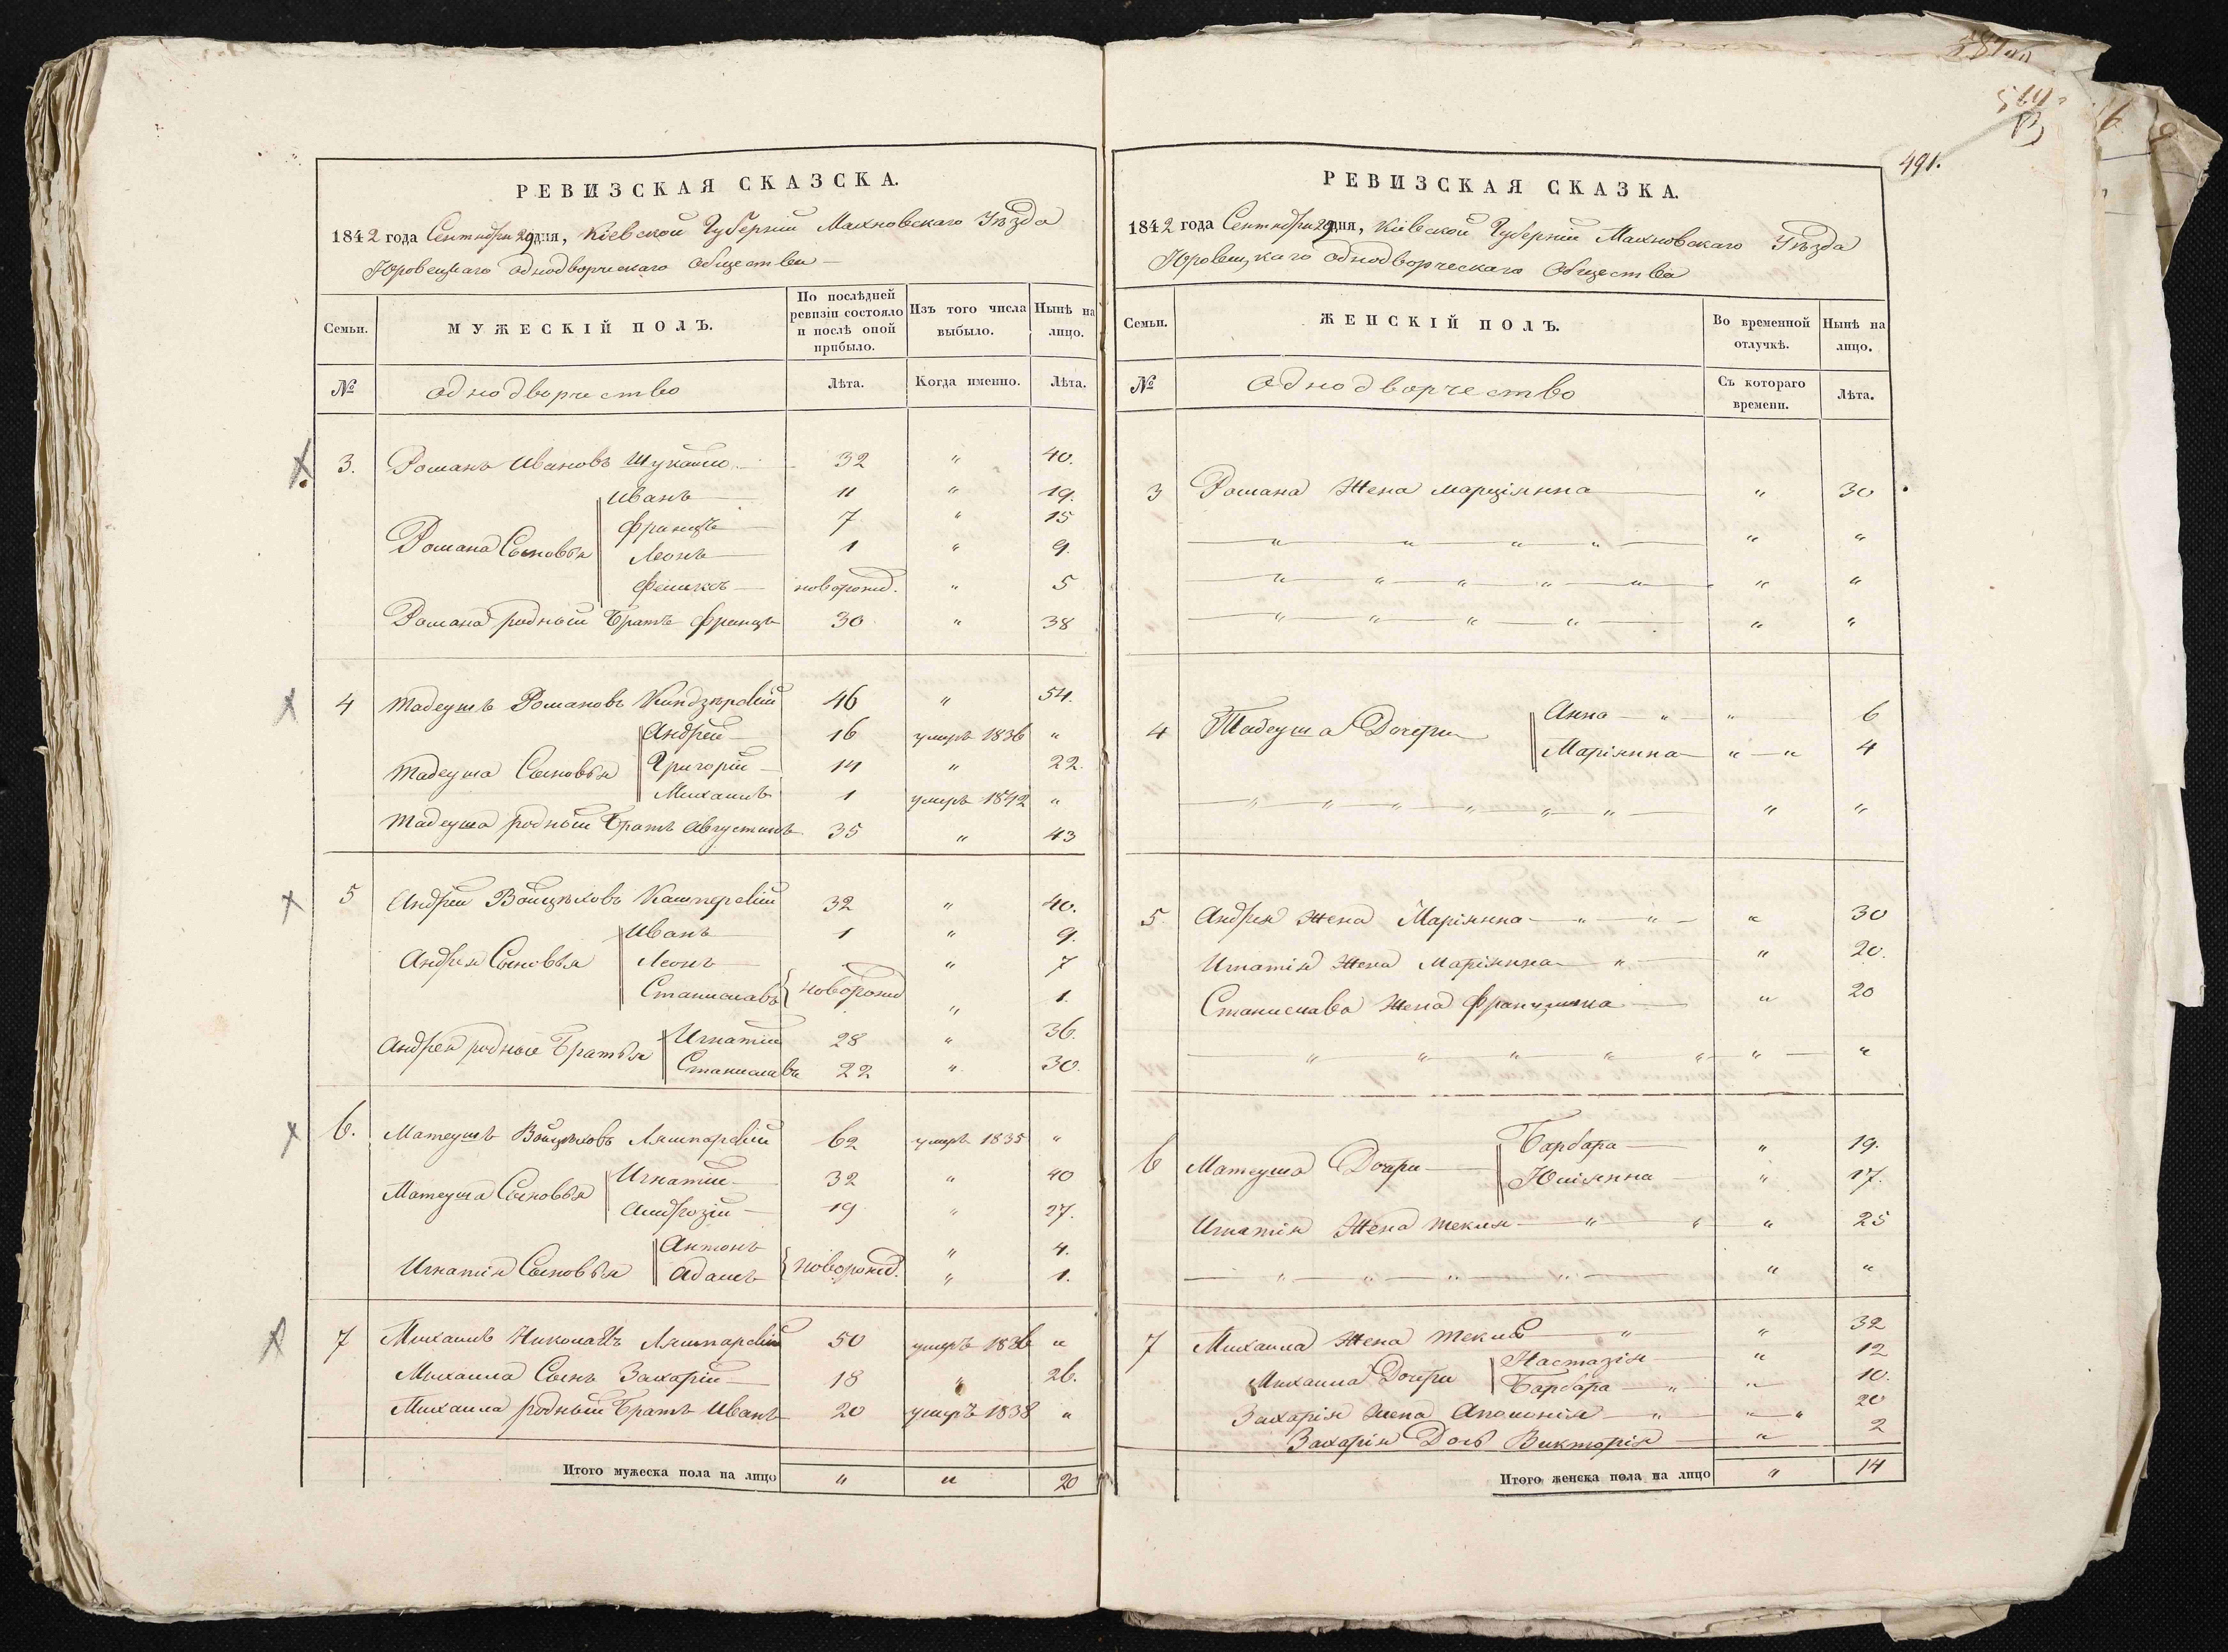 491.
РЕВИЗСКАЯ СКАЗСКА.
1842 года Сентября 29 дня, Кіевской Губерніи Махновскаго Уѣзда
Юровецкаго однодворческаго Общества
Семьи.
МУЖЕСКІЙ ПОЛЪ.
По послѣдней ревизіи состояло и послѣ оной прибыло.
Изъ того числа выбыло.
Нынѣ на лицо.
№
однодворчество
Лѣта.
Когда именно.
Лѣта.
3. Романъ Ивановъ 32 " 40.
Иванъ 11 " 19.
Францъ 7 " 15
Романа Сыновья
Леонъ 1 " 9.
Феликсъ новорожд. " 5
Романа родный Братъ Францъ 30 " 38
4 Тадеушъ Романовъ 46 " 54.
Андрей 16 умеръ 1836 "
Тадеуша Сыновья Григорій 14 " 22.
Михаилъ 1 умеръ 1842 "
Тадеуша родный Братъ Августинъ 35 " 43
5 Андрей Войцѣховъ Кашперскій 32 " 40.
Иванъ 1 " 9.
Андрея Сыновья Леонъ " 7
Станиславъ новорожд " 1.
Андрея родные Братья Игнатій 28 " 36.
Станиславъ 22 " 30.
6. Матеушъ Войцѣховъ Ляшпарскій 62 умеръ 1835 "
Матеуша Сыновья Игнатій 32 " 40
Амброзій 19 " 27.
Антонъ " 4.
Игнатія Сыновья Адамъ новорожд. " 1.
7 Михаилъ Ляшпарскій 50 умеръ 1836 "
Михаила Сынъ Захарій 18 " 26.
Михаила родный Братъ Иванъ 20 умеръ 1838 "
Итого мужеска пола на лицо " " 20
РЕВИЗСКАЯ СКАЗКА.
1842 года Сентября 29 дня, Кіевской Губерніи Махновскаго Уѣзда
Юровецкаго однодворческаго Общества
Семьи.
ЖЕНСКІЙ ПОЛЪ.
Во временной отлучкѣ.
Нынѣ на лицо.
№
Однодворчество
Съ котораго времени.
Лѣта.
3 Романа Жена Марціянна " 30
" " " " " "
" " " " " " "
" " " " " "
4 Тадеуша Дочери Анна " " 6
Маріянна " " 4
" " " " " " " "
5 Андрея Жена Маріянна " " " 30
Игнатія Жена Маріянна " " 20.
Станислава Жена Францишка " 20
" " " " " " "
6 Матеуша Дочери Барбара " 19.
Юліянна " 17.
Игнатія Жена Текля " " " 25
" " " " " "
7 Михаила Жена Текля " " 32
Настазія " 12
Михаила Дочери Барбара " " 10.
Захарія Жена Аполонія " " " 20
Захарія Дочь Викторія " 2
Итого женска пола на лицо " 14